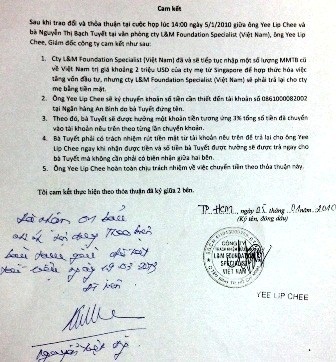 Cam kết
Sau khi trao đổi và thỏa thuận tại cuộc họp lúc 14:00 ngày 5/1/2010 giữa ông Yee Lip Chee và
bà Nguyễn Thị Bạch Tuyết tại văn phòng cty L&M Foundation Specialist (Việt Nam), ông Yee Lip
Chee, Giám đốc công ty cam kết như sau:
1. Cty L&M Foundation Specialist (Việt Nam) đã và sẽ tiếp tục nhập một số lượng MMTB cũ
về Việt Nam trị giá khoảng 2 triệu USD của cty mẹ từ Singapore để hợp thức hóa việc
tăng vốn đầu tư, nhưng cty L&M Foundation Specialist (Việt Nam) sẽ phải trả lại cho cty
mẹ bằng tiền mặt.
2. Ông Yee Lip Chee sẽ ký chuyển khoản số tiền cần thiết đến tài khoản số 0861000082002
tại Ngân hàng An Bình do bà Tuyết đứng tên.
3. Theo đó, bà Tuyết sẽ được hưởng một khoản tiền tương ứng 3% tổng số tiền đã chuyển
vào tài khoản nêu trên theo từng lần chuyển khoản.
4. Bà Tuyết phải có trách nhiệm rút tiền mặt từ tài khoản nêu trên để trả lại cho ông Yee
Lip Chee ngay khi nhận được tiền và số tiền bà Tuyết được hưởng sẽ được trả ngay cho
bà Tuyết mà không cần phải có biên nhận giữa hai bên.
5. Ông Yee Lip Chee hoàn toàn chịu trách nhiệm về việc chuyển tiền theo thỏa thuận này.
Tôi cam kết thực hiện theo thỏa thuận đã ký giữa 2 bên.
TP. HCM, ngày 05 tháng 01 năm 2010
(Ký tên, đóng dấu)
CÔNG TY
L&M FOUNDATION
SPECIALIST
VIỆT NAM
YEE LIP CHEE
Đã nhận